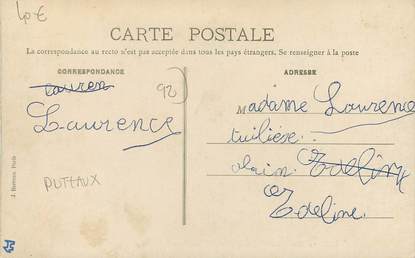 40€
CARTE POSTALE
La correspondance au recto n'est pas acceptée dans tous les pays étrangers. Se renseigner à la poste
CORRESPONDANCE
ADRESSE
Lauren
92)
Laurence
Madame Laurence
tuilière
alain
Edeline
PUTEAUX